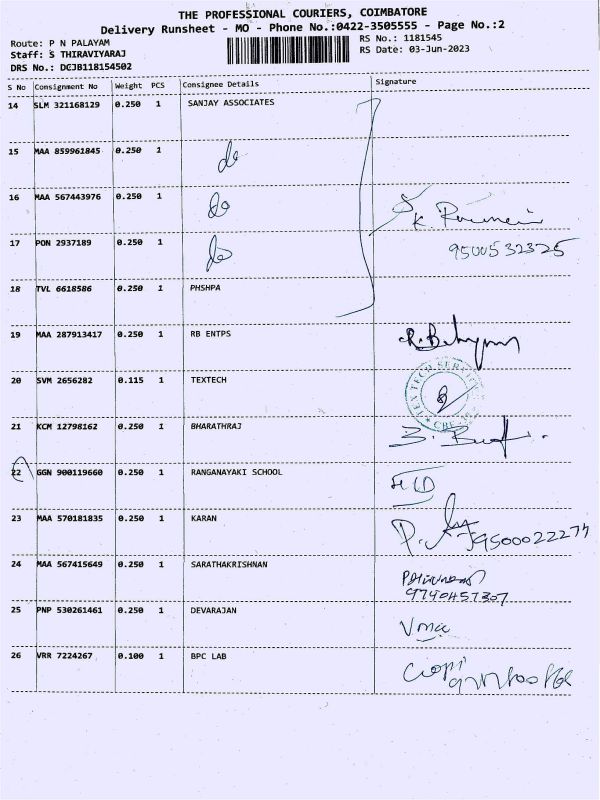 THE PROFESSIONAL COURIERS, COIMBATORE
Delivery Runsheet - MO - Phone No.:0422-3505555 - Page No.:2
Route: P N PALAYAM
RS No.: 1181545
Staff: S THIRAVIYARAJ
RS Date: 03-Jun-2023
DRS No.: DCJB118154502
S No Consignment No Weight PCS Consignee Details Signature
14 SLM 321168129 0.250 1 SANJAY ASSOCIATES
15 MAA 859961845 0.250 1 do
16 MAA 567443976 0.250 1 do
17 PON 2937189 0.250 1 do 9500532325
18 TVL 6618586 0.250 1 PHSHPA
19 MAA 287913417 0.250 1 RB ENTPS
20 SVM 2656282 0.115 1 TEXTECH
TEX TECH
21 KCM 12798162 0.250 1 BHARATHRAJ
22 GGN 900119660 0.250 1 RANGANAYAKI SCHOOL
23 MAA 570181835 0.250 1 KARAN
24 MAA 567415649 0.250 1 SARATHAKRISHNAN
25 PNP 530261461 0.250 1 DEVARAJAN
26 VRR 7224267 0.100 1 BPC LAB